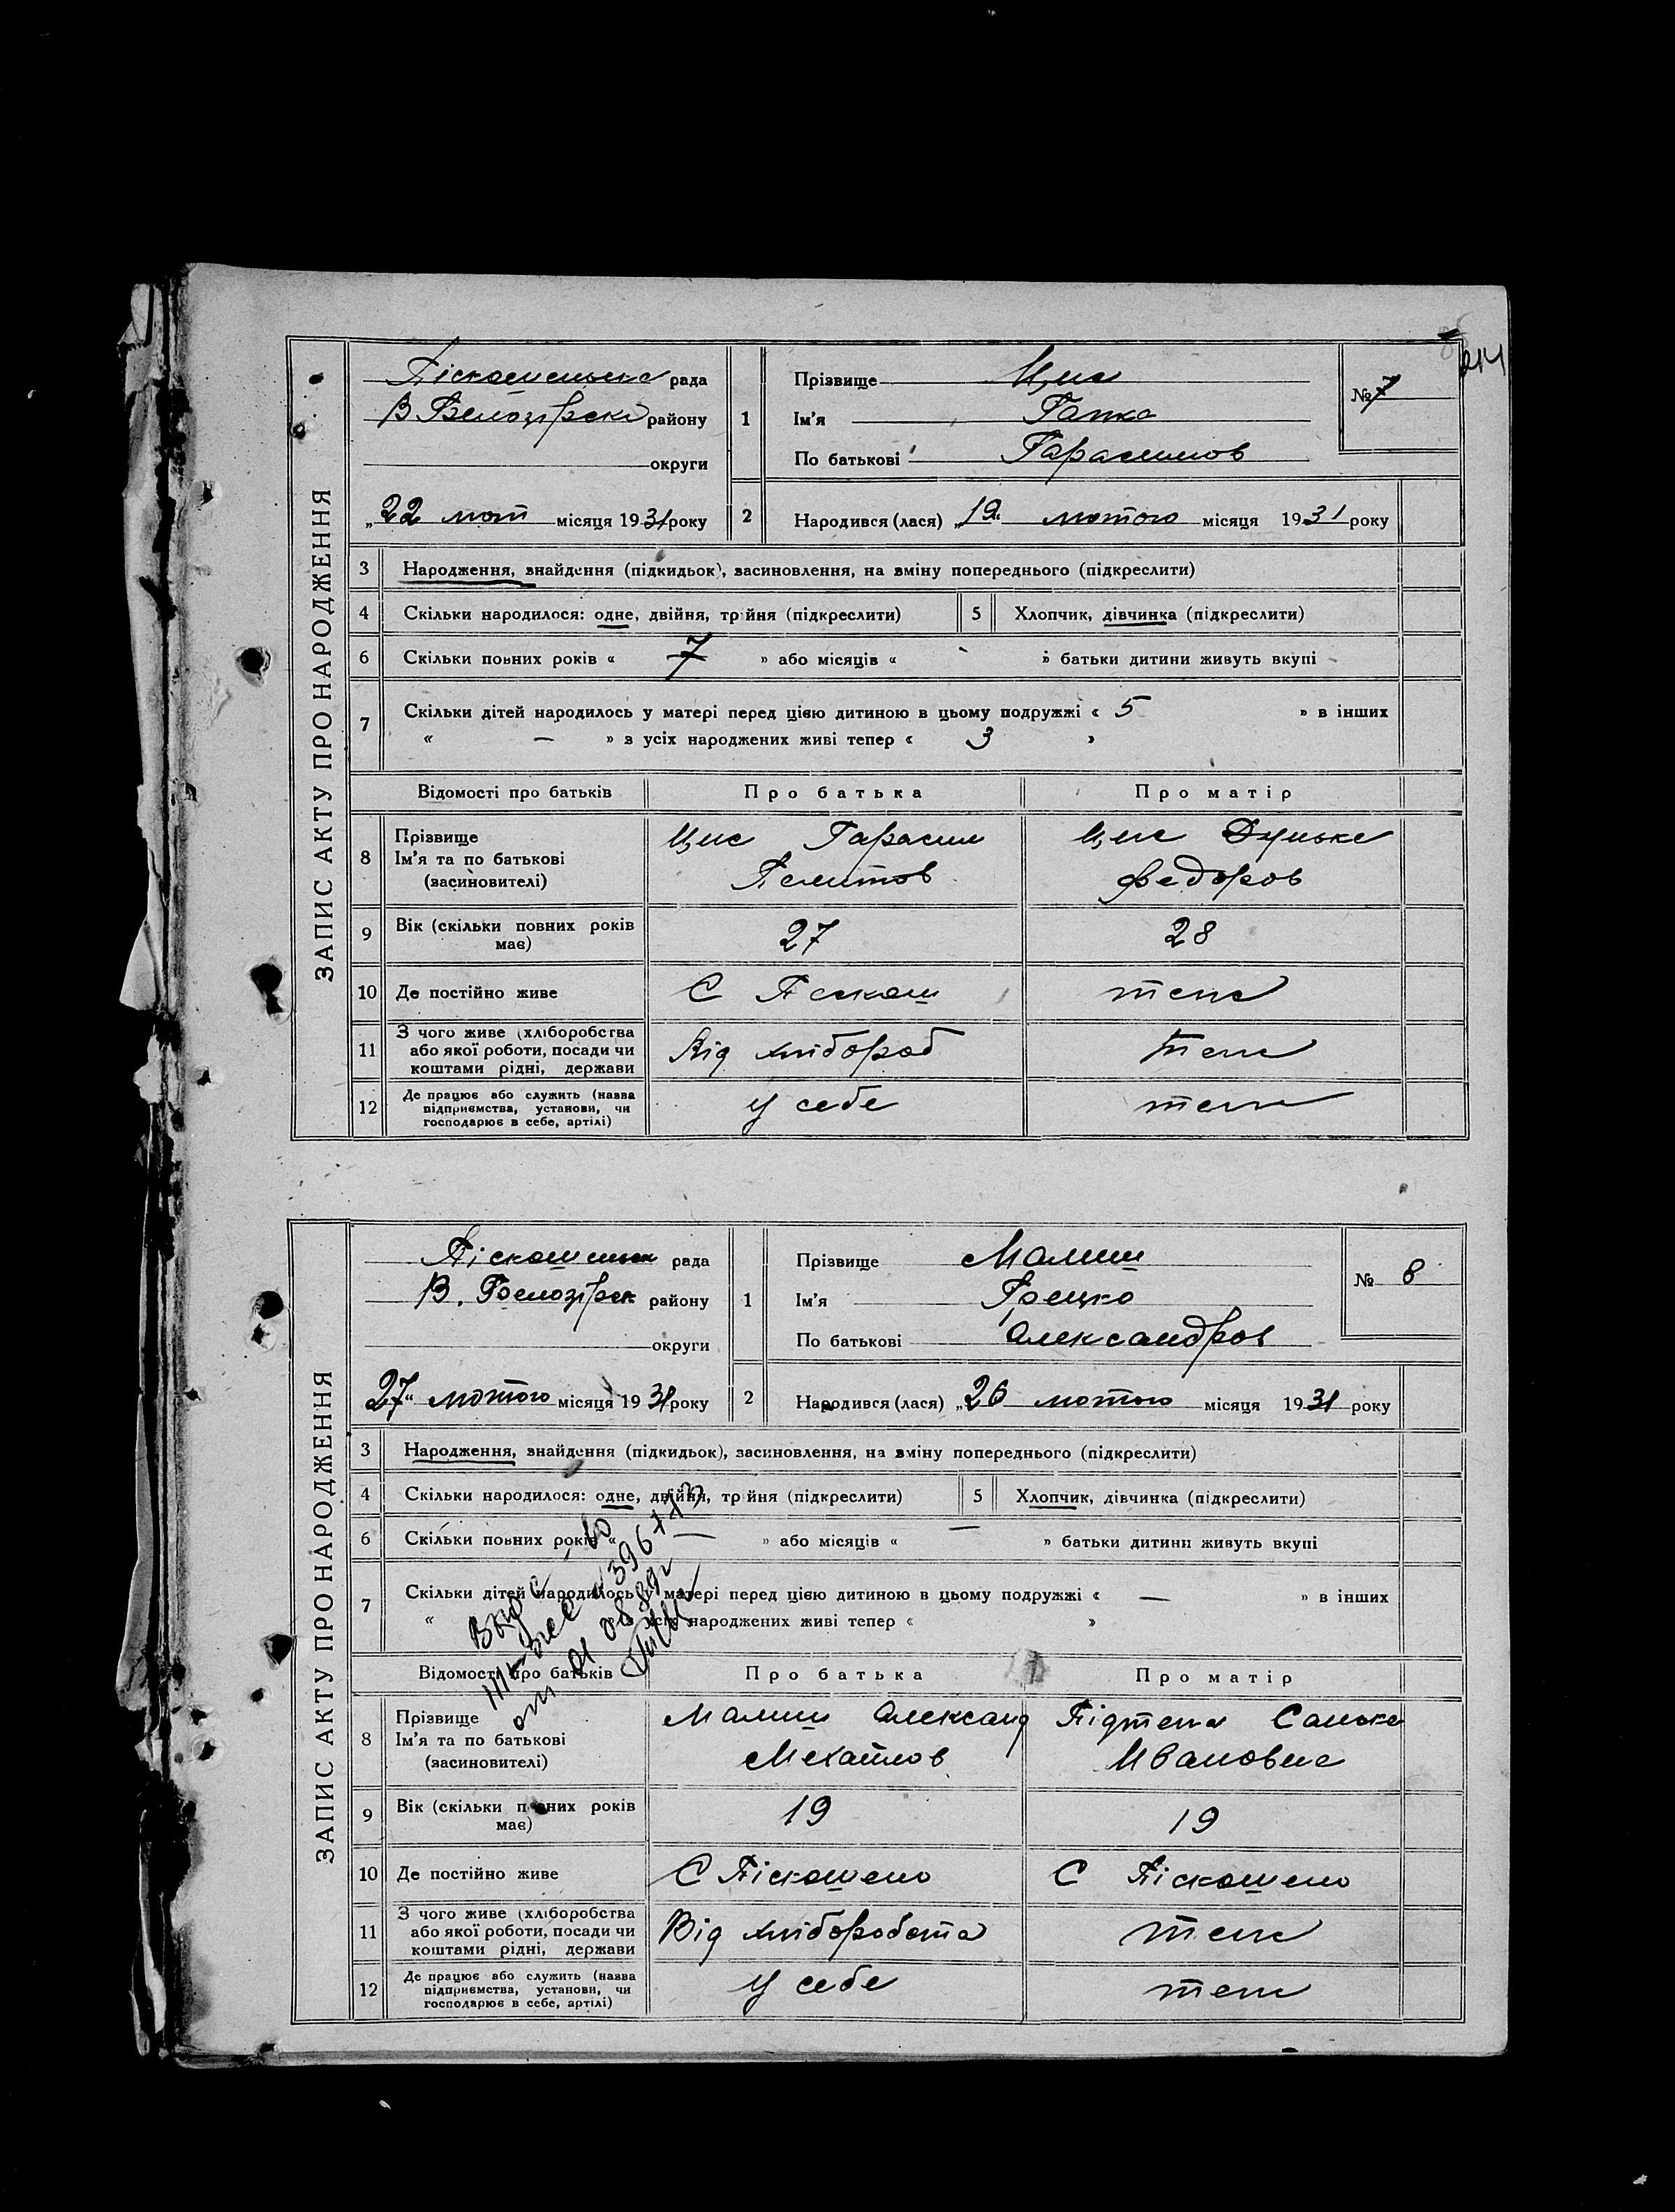 214
ЗАПИС АКТУ ПРО НАРОДЖЕННЯ
рада
В. Белозірск району
округи
„22 лют місяця 1931 року
1
Прізвище Цис
Ім'я Гапка
По батькові Гарасимов
№ 7
2
Народився (лася) „19“ лютого місяця 1931 року
3 Народження, знайдення (підкидьок), засиновлення, на зміну попереднього (підкреслити)
4 Скільки народилося: одне, двійня, трійня (підкреслити) 5 Хлопчик, дівчинка (підкреслити)
6 Скільки повних років « 7 » або місяців « » батьки дитини живуть вкупі
7 Скільки дітей народилось у матері перед цією дитиною в цьому подружжі « 5 » в інших
« — » з усіх народжених живі тепер « 3 »
Відомості про батьків Про батька Про матір
8 Прізвище Ім'я та по батькові (засиновителі)
Цис Гарасим
Цис Дунька
Федоров
9 Вік (скільки повних років має) 27 28
10 Де постійно живе С Пескош тепе
11 З чого живе (хліборобства або якої роботи, посади чи коштами рідні, держави Від хлібороб тепе
12 Де працює або служить (назва підприємства, установи, чи господарює в себе, артілі) У себе тепе
ЗАПИС АКТУ ПРО НАРОДЖЕННЯ
рада
В. Белозірск району
округи
27“ лютого місяця 1931 року
1
Прізвище Малиш
Ім'я Грецко
По батькові Александров
№ 8
2
Народився (лася) „26 лютого місяця 1931 року
3 Народження, знайдення (підкидьок), засиновлення, на зміну попереднього (підкреслити)
4 Скільки народилося: одне, двійня, трійня (підкреслити) 5 Хлопчик, дівчинка (підкреслити)
6 Скільки повних років « — » або місяців « — » батьки дитини живуть вкупі
7 Скільки дітей народилось у матері перед цією дитиною в цьому подружжі « — » в інших
« » з усіх народжених живі тепер « »
Відомості про батьків Про батька Про матір
8 Прізвище Ім'я та по батькові (засиновителі)
Малиш Александ
Мехайлов
Санька
Ивановна
9 Вік (скільки повних років має) 19 19
10 Де постійно живе С Піскошено С Піскошено
11 З чого живе (хліборобства або якої роботи, посади чи коштами рідні, держави Від хліборобста тепе
12 Де працює або служить (назва підприємства, установи, чи господарює в себе, артілі) У себе тепе